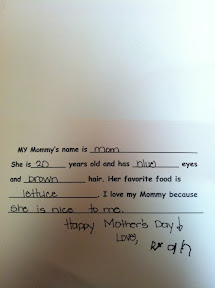 MY Mommy's name is mom
She is 20 years old and has blue eyes
and brown hair. Her favorite food is
lettuce. I love my Mommy because
she is nice to me.
Happy Mother's Day!
Love,